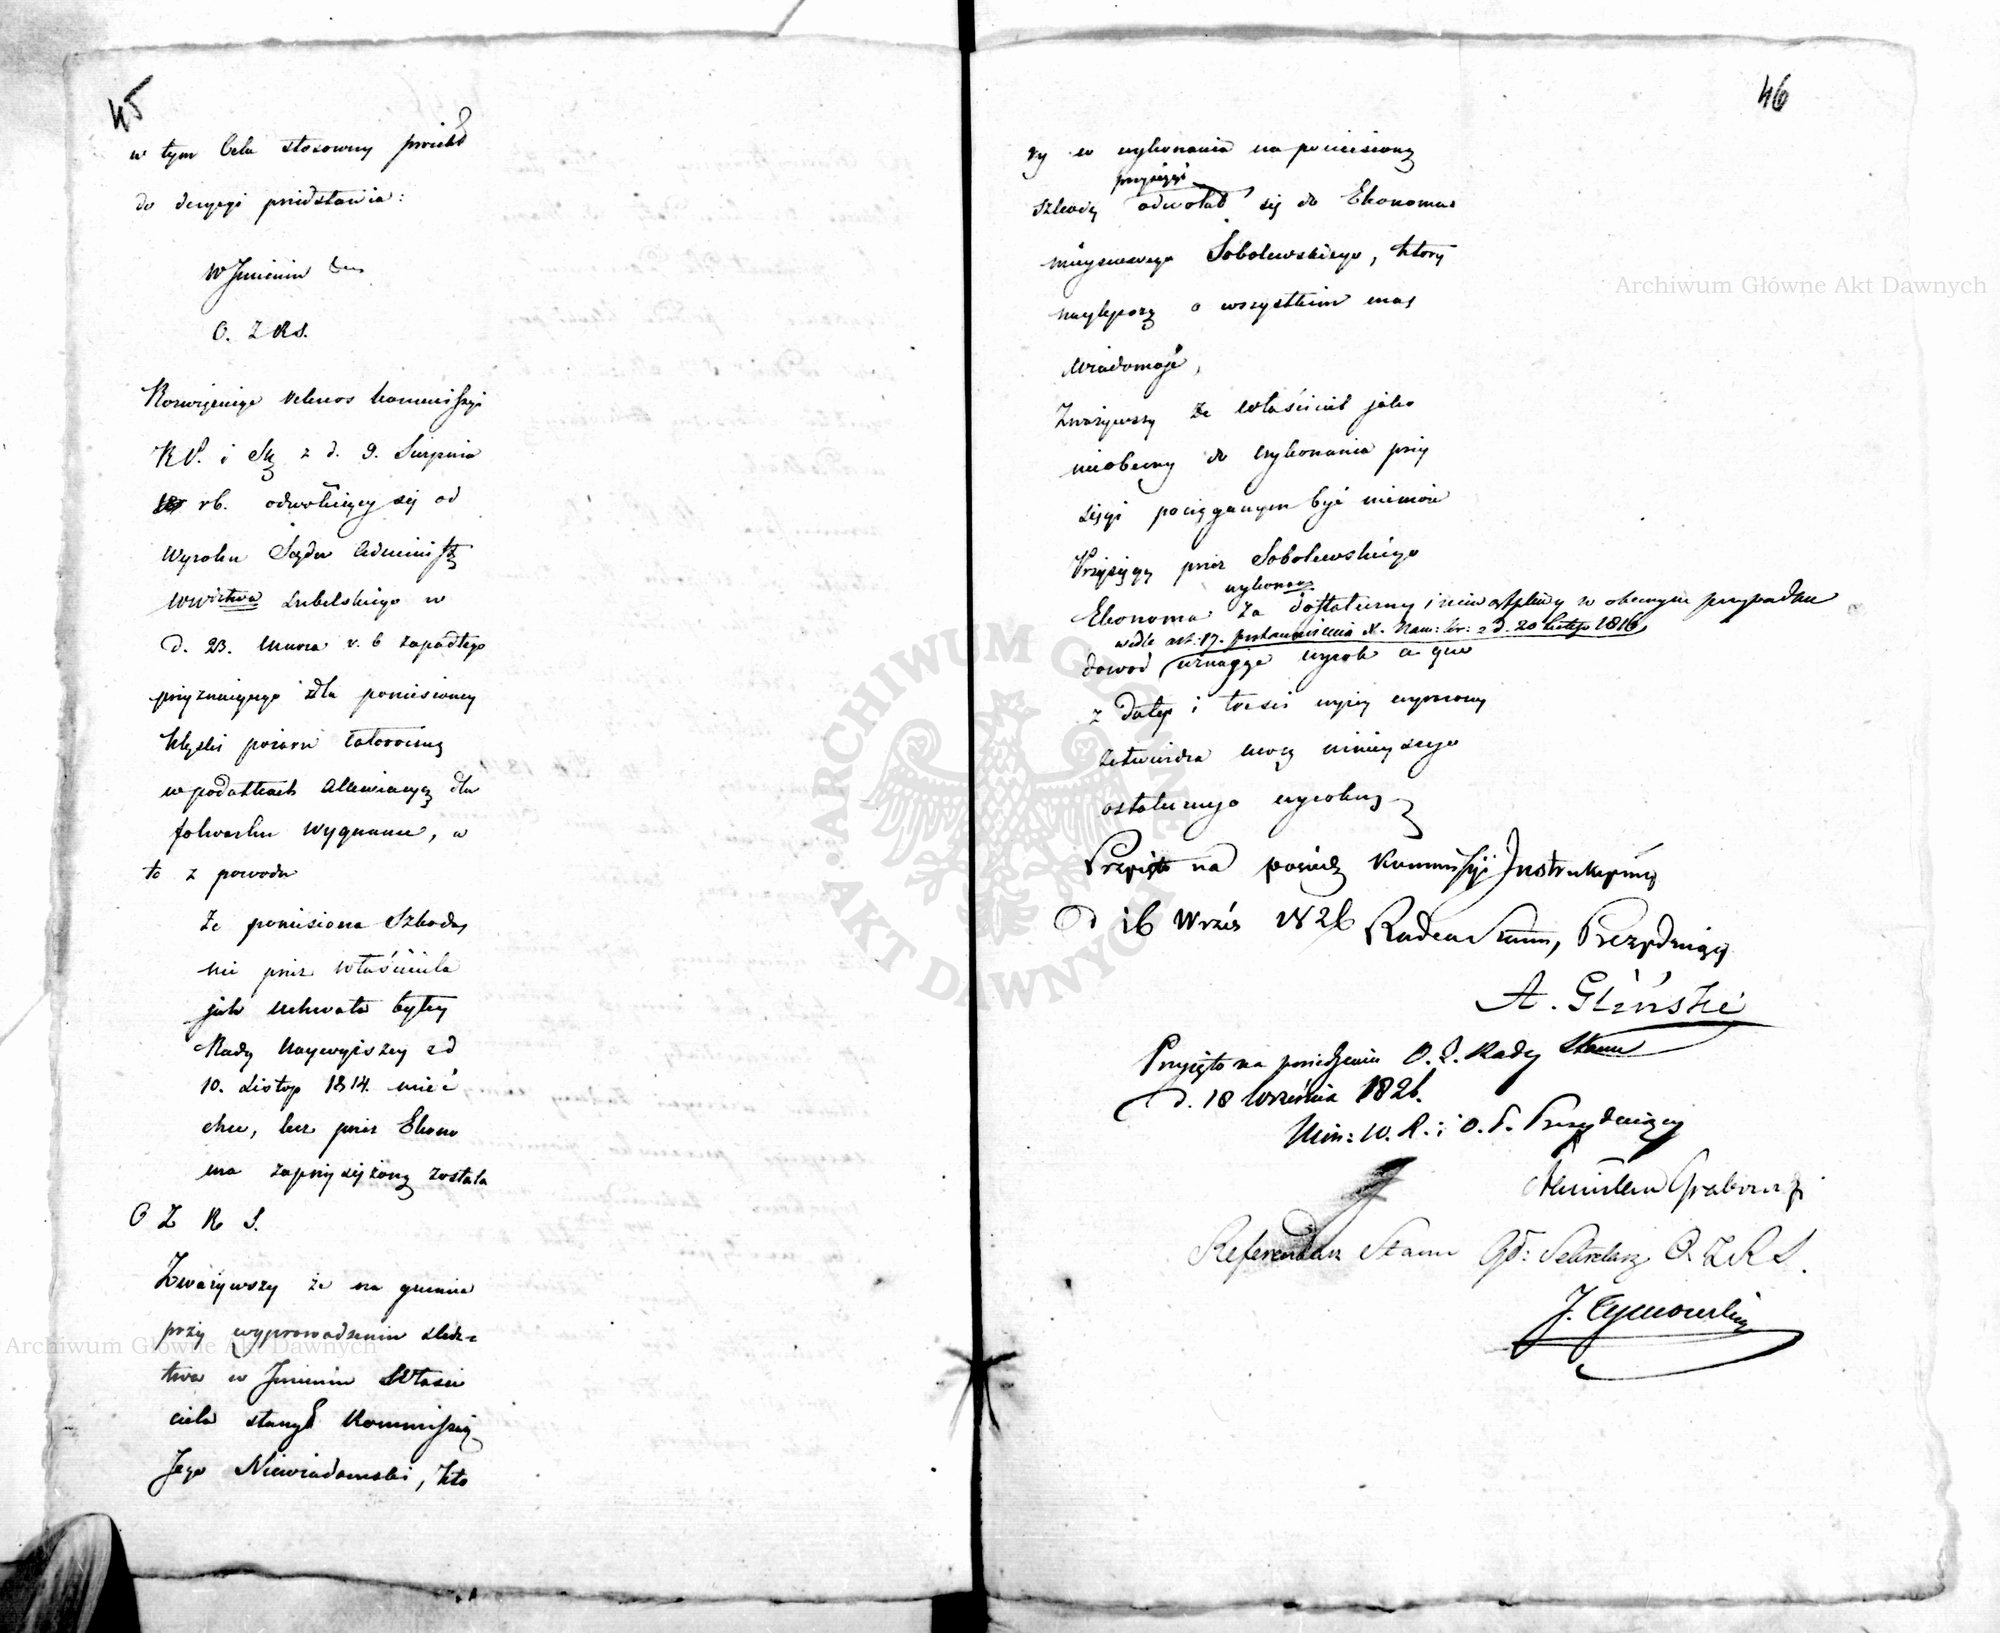 45
w tym Celu stosowny proiekt
do decyzyi przedstawia:
W Jmieniu
O. Z R S.
Rozwiązuiąc rekurs kommissyi
R P. i Sk z d. 9. Sierpnia
rb. odwołuiący się od
Wyroku Sądu Administ
Wwdztwa Lubelskiego w
d. 23. Marca r. b zapadłego
przyznaiącego dla poniesioney
klęski pożaru całoroczną
w podatkach allewiacyą dla
folwarku Wygnanie, a
to z powodu
Że poniesiona Szkoda
nie przez właściciela
jak uchwała byłey
Rady Naywyższey z d
10. Listop 1814. mieć
chce, lecz przez Ekono
ma zaprzysiężoną została
O Z R S.
Zważywszy że na gruncie
przy wyprowadzeniu śledz=
twa w Jmieniu Właści
ciela stanął Kommissarz
Jego Niewiadomski, kto
46
ry co wykonania na poniesioną
przysięgi
szkodę odwołał się do Ekonoma
mieyscowego Sobolewskiego, który
naylepszą o wszystkiem ma
wiadomość,
Zważywszy że właściciel jako
nieobecny do wykonania przy
sięgi pociąganym być niemoże
Przysięgę przez Sobolewskiego
wykonaną
Ekonoma za dostateczny i niewątpliwy w obecnym przypadku
wedle art: 17. postanowienia X. Nam: Kr: z d. 20 lutego 1816
dowod uznaje wyrok a quo
z daty i treści wyżey wyrażony
zatwierdza mocą ninieyszego
ostatecznego wyroku
Przyięto na posiedz Kommissyi Instrukcyiney
d 16 Wrześ 1826 Radca Stanu, Prezyduiący
A. Gliński
Przyięto na posiedzeniu O. Z. Rady Stanu
d. 18 Września 1826.
Min: W. R. i O. P. Prezyduiący
Stanisław Grabowski
Referendarz Stanu Gł: Sekretarz O. Z R S.
J. Tymowski
Archiwum Główne Akt Dawnych
Archiwum Główne Akt Dawnych
ARCHIWUM GŁÓWNE AKT DAWNYCH